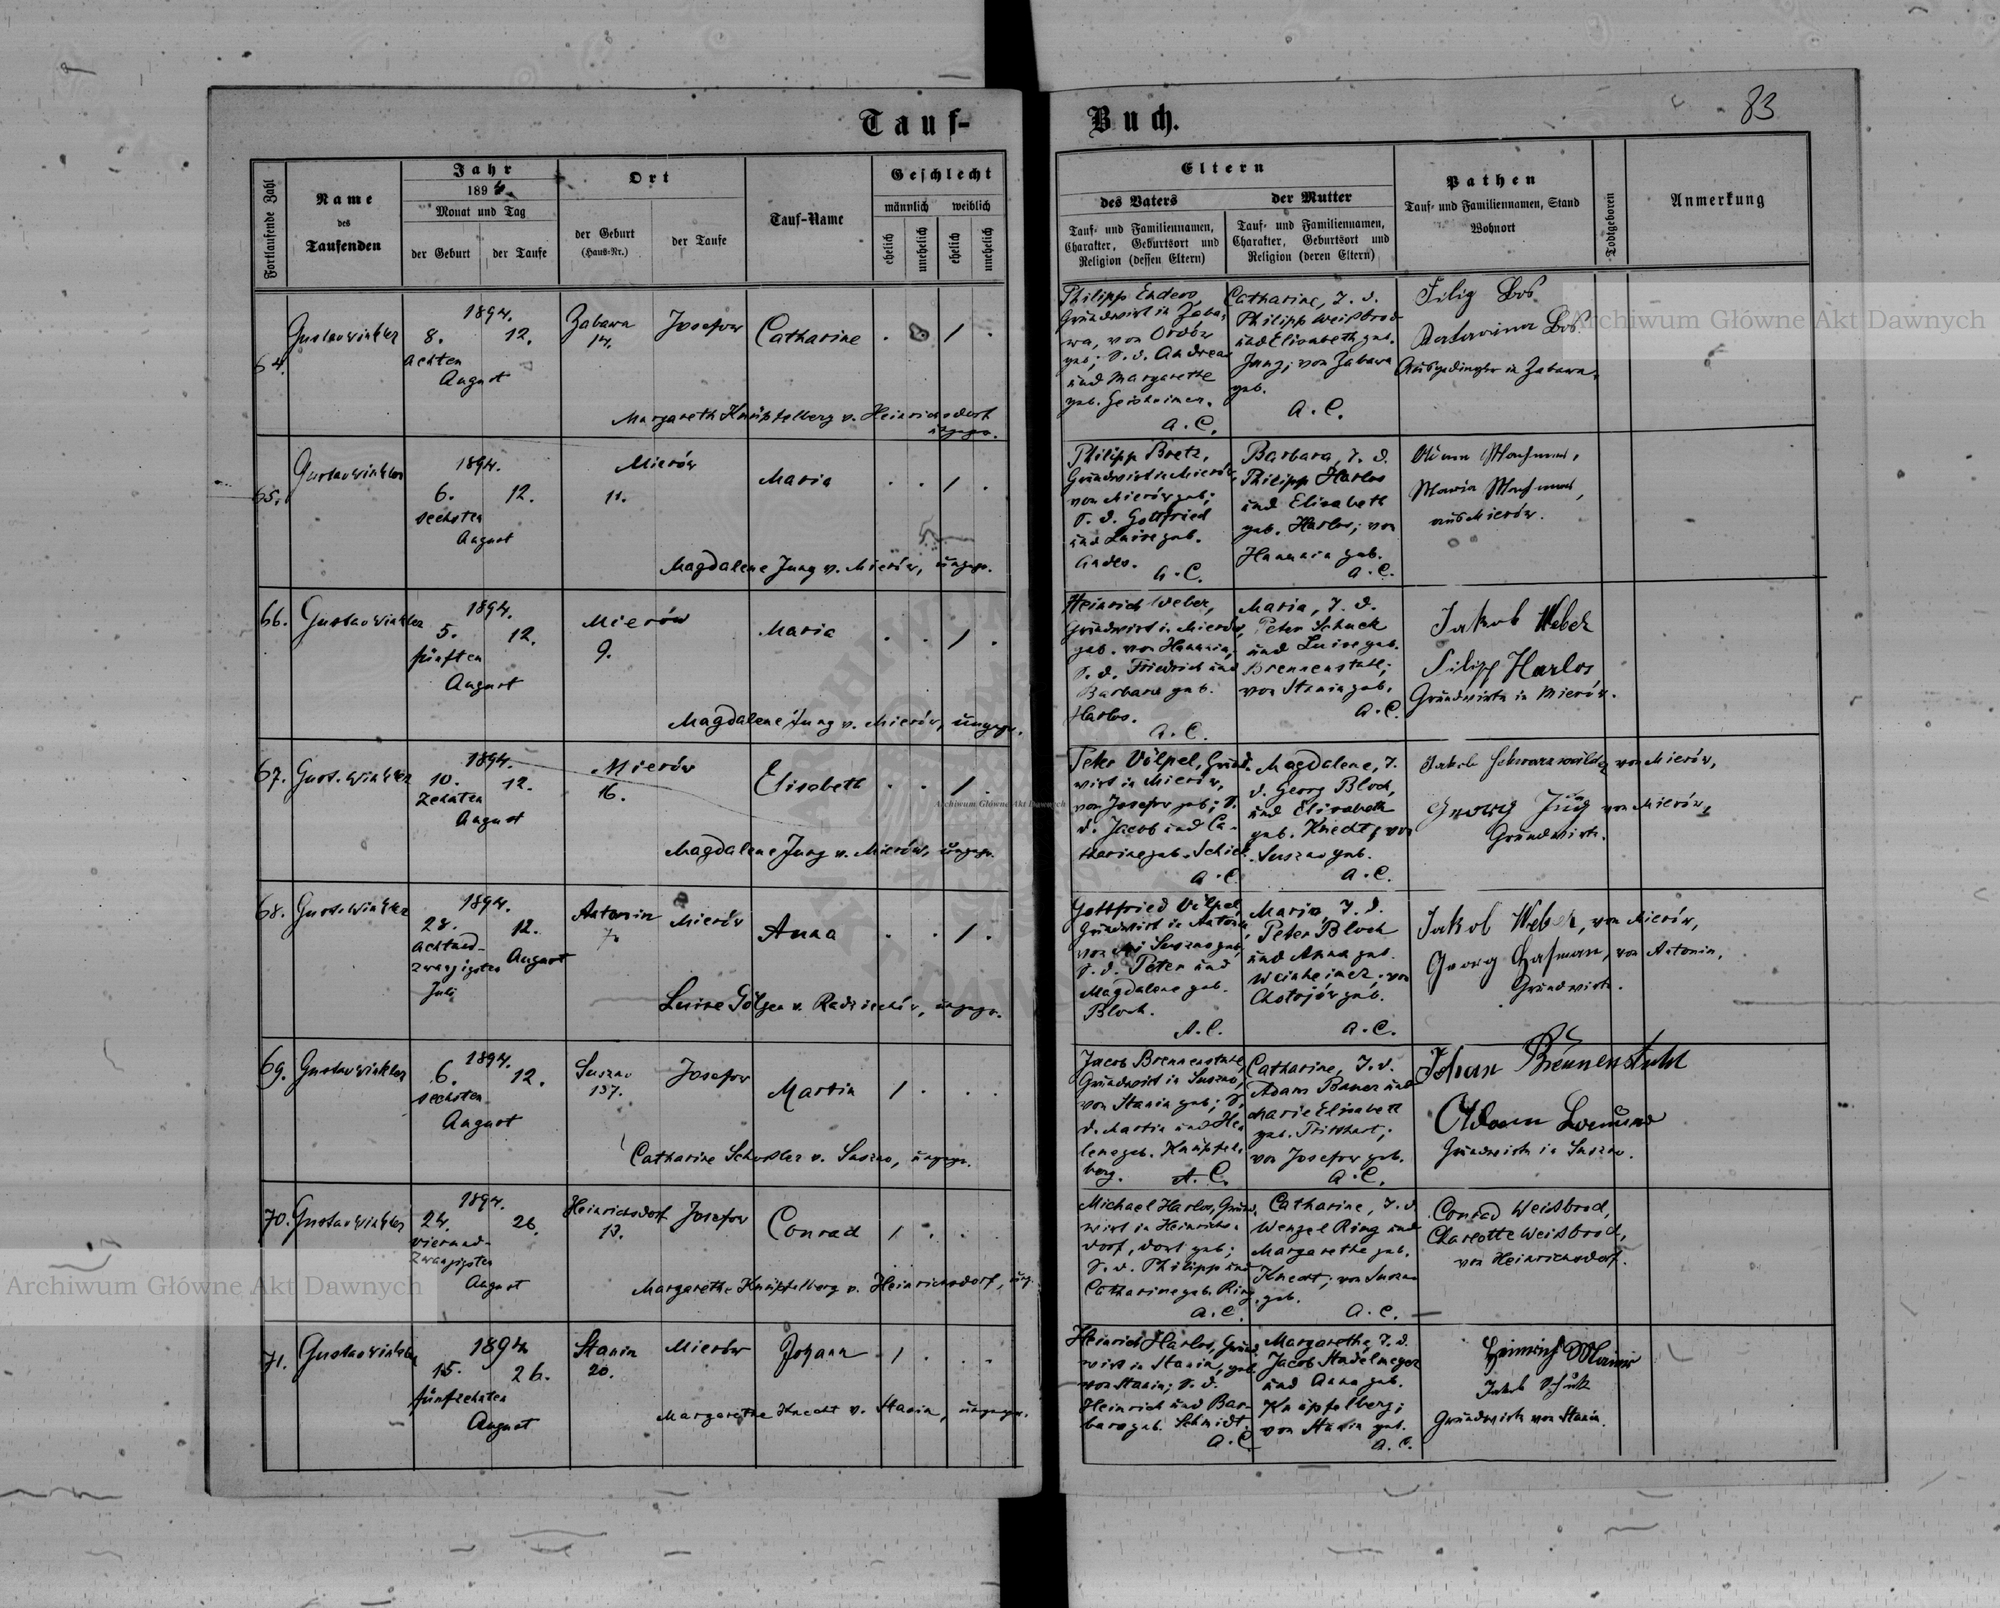 83
Tauf-
Buch.
Fortlaufende Zahl
Name
des
Taufenden
Jahr
1894.
Monat und Tag
der Geburt
der Taufe
Ort
der Geburt
(Haus-Nr.)
der Taufe
Tauf-Name
Geschlecht
männlich
weiblich
ehelich
unehelich
ehelich
unehelich
Eltern
des Vaters
Tauf- und Familiennamen,
Charakter, Geburtsort und
Religion (dessen Eltern)
der Mutter
Tauf- und Familiennamen,
Charakter, Geburtsort und
Religion (deren Eltern)
Pathen
Tauf- und Familiennamen, Stand
Wohnort
Todtgeboren
Anmerkung
64.
Gustav Winkler
1894.
8.
12.
achten
August
Zabawa
14.
Josefow
Catharine
Margareth Knüpfelberg v. Heinrichsdorf
ungepr.
Philipp Enders,
Grundwirt in Zaba-
wa, von
geb; S. d. Andreas
und Margarethe
geb. Geisheimer.
A. C.
Catharine, T. d.
Philipp Weißbrod
und Elisabeth geb.
Jung; von Zabawa
geb.
A. C.
Filip Bos
Katarina Bos
Ausgedingler in Zabawa.
65.
Gustav Winkler
1894.
6.
12.
sechsten
August
Mierów
11.
Maria
Magdalene Jung v. Mierów, ungepr.
Philipp Bretz,
Grundwirt in Mierów,
von Mierów geb;
S. d. Gottfried
und Luise geb.
Andes.
A. C.
Barbara, T. d.
Philipp Harlos
und Elisabeth
geb. Harlos; von
Hanunin geb.
A. C.
Maria
aus Mierów.
66.
Gustav Winkler
1894.
5.
12.
fünften
August
Mierów
9.
Maria
Magdalene Jung v. Mierów, ungepr.
Heinrich Weber,
Grundwirt in Mierów,
geb. von Hanunin,
S. d. Friedrich und
Barbara geb.
Harlos.
A. C.
Maria, T. d.
Peter Schuck
und Luise geb.
Brennenstuhl;
von Stanin geb.
A. C.
Jakob Weber
Filipp Harlos
Grundwirte in Mierów.
67.
Gust. Winkler
1894.
10.
12.
zehnten
August
Mierów
16.
Elisabeth
Magdalene Jung v. Mierów, ungepr.
Peter Völpel, Grund-
wirt in Mierów,
von Josefow geb; S.
d. Jacob und Ca-
tharine geb. Schick
A. C.
Magdalene, T.
d. Georg Bloch,
und Elisabeth
geb. Knecht; von
Suszno geb.
A. C.
Jakob Schwarzwälder von Mierów,
Georg Jung von Mierów,
Grundwirte.
68.
Gust. Winkler
1894.
28.
12.
achtund-
zwanzigsten
August
Juli
Antonin
7.
Mierów
Anna
Luise Gölzen v. Radziechów, ungepr.
Gottfried Völpel,
Grundwirt in Antonin,
von Suszno geb;
S. d. Peter und
Magdalene geb.
Bloch.
A. C.
Maria, T. d.
Peter Bloch
und Anna geb.
Weinheimer; von
Chołojów geb.
A. C.
Jakob Weber, von Mierów,
Georg Hasman, von Antonin,
Grundwirte.
69.
Gustav Winkler
1894.
6.
12.
sechsten
August
Suszno
137.
Josefow
Martin
Catharine Schoßler v. Suszno, ungepr.
Jacob Brennenstuhl,
Grundwirt in Suszno,
von Stanin geb; S.
d. Martin und He-
lene geb. Knüpfel-
berg.
A. C.
Catharine, T. d.
Adam Bauer und
Marie Elisabeth
geb. Tritthart;
von Josefow geb.
A. C.
Johan Brennenstuhl
Adam
Grundwirte in Suszno.
70.
Gustav Winkler
1894.
24.
26.
vierund-
zwanzigsten
August
Heinrichsdorf
13.
Josefow
Conrad
Margarethe Knüpfelberg v. Heinrichsdorf, ung.
Michael Harlos, Grund-
wirt in Heinrichs-
dorf, dort geb;
S. d. Philipp und
Catharine geb. Ring.
A. C.
Catharine, T. d.
Wenzel Ring und
Margarethe geb.
Knecht; von Suszno
geb.
A. C.
Conrad Weißbrod,
Charlotte Weißbrod,
von Heinrichsdorf.
71.
Gustav Winkler
1894
15.
26.
fünfzehnten
August
Stanin
20.
Mierów
Johann
Margarethe Knecht v. Stanin, ungepr.
Heinrich Harlos, Grund-
wirt in Stanin, geb.
von Stanin; S. d.
Heinrich und Bar-
bara geb. Schmidt.
A. C.
Margarethe, T. d.
Jacob Stadelmeyer
und Anna geb.
Knüpfelberg;
von Stanin geb.
A. C.
Heinrich Manz
Jakob Schuck
Grundwirte von Stanin.
Archiwum Główne Akt Dawnych
Archiwum Główne Akt Dawnych
Archiwum Główne Akt Dawnych